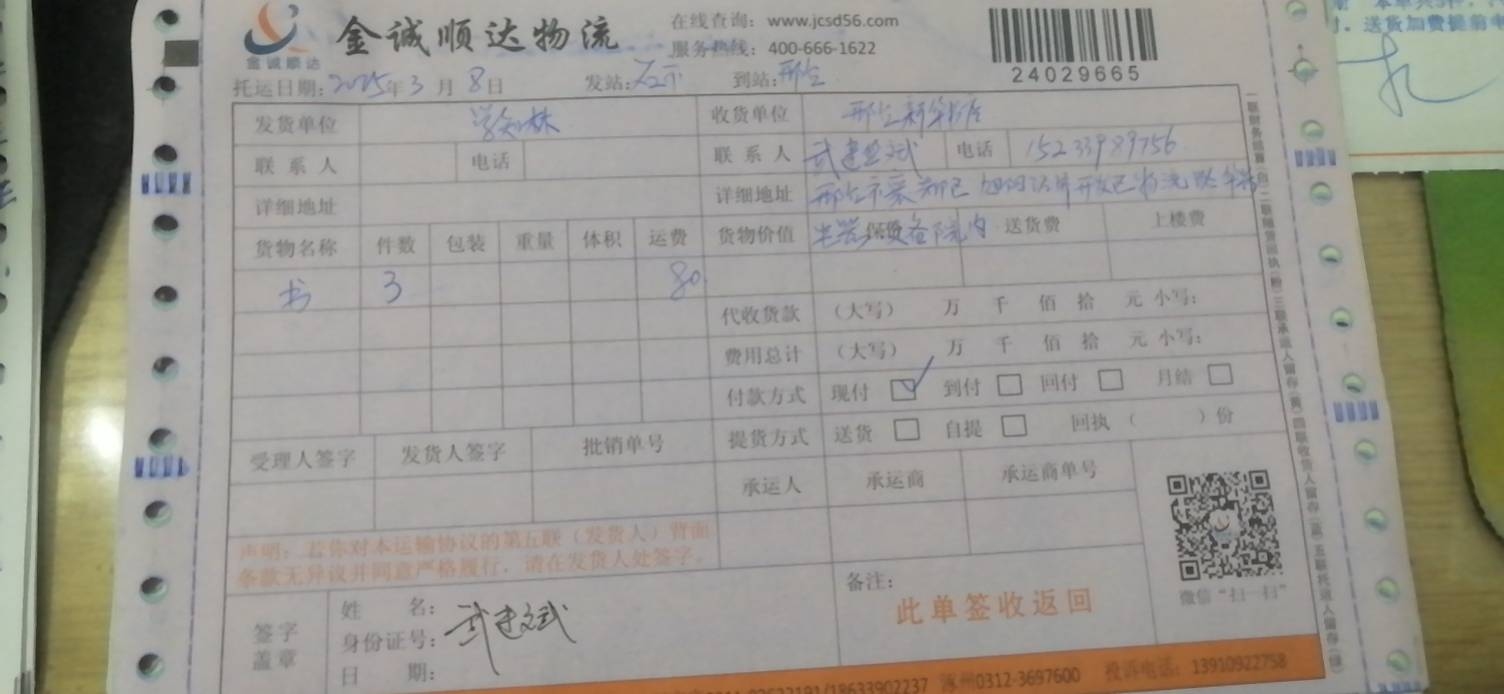 金诚顺达物流
在线查询：www.jcsd56.com
服务热线：400-666-1622
金诚顺达
24029665
托运日期：2025年3月8日 发站： 到站：邢台
发货单位 学知林 收货单位 邢台新华书店
联系人 电话 联系人 武建 斌 电话 15233989756
详细地址 详细地址 邢台市
货物名称 件数 包装 重量 体积 运费 货物价值 院内 送货费 上楼费
书 3 80
代收货款 （大写） 万 千 佰 拾 元 小写：
费用总计 （大写） 万 千 佰 拾 元 小写：
付款方式 现付 到付 回付 月结
提货方式 送货 自提 回执（ ）份
受理人签字 发货人签字 批销单号
承运人 承运商 承运商单号
声明：若你对本运输协议的第五联（发货人）背面
条款无异议并同意严格履行，请在发货人处签字。
签字
盖章
姓 名：
身份证号：
日 期：
武建斌
备注：
此单签收返回
微信“扫一扫”
/18633902237 涿州0312-3697600 投诉电话：13910922758
送货加费提前